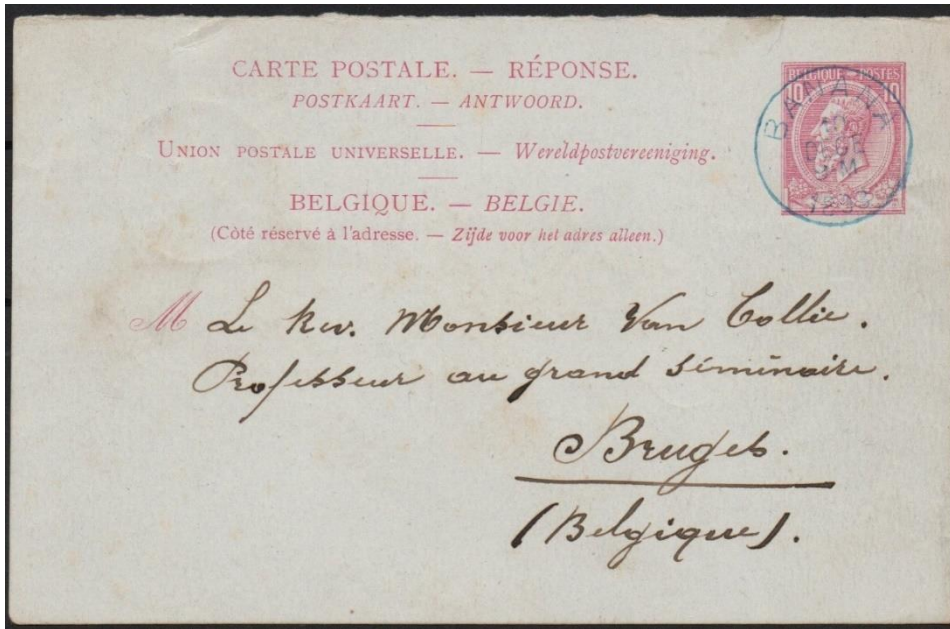 CARTE POSTALE. — RÉPONSE.
POSTKAART. — ANTWOORD.
UNION POSTALE UNIVERSELLE. — Wereldpostvereeniging.
BELGIQUE. — BELGIE.
(Côté réservé à l'adresse. — Zijde voor het adres alleen.)
BELGIQUE POSTES
10 10
BANANA
M Le Rev. Monsieur Van Collie.
Professeur au grand séminaire.
Bruges.
(Belgique).